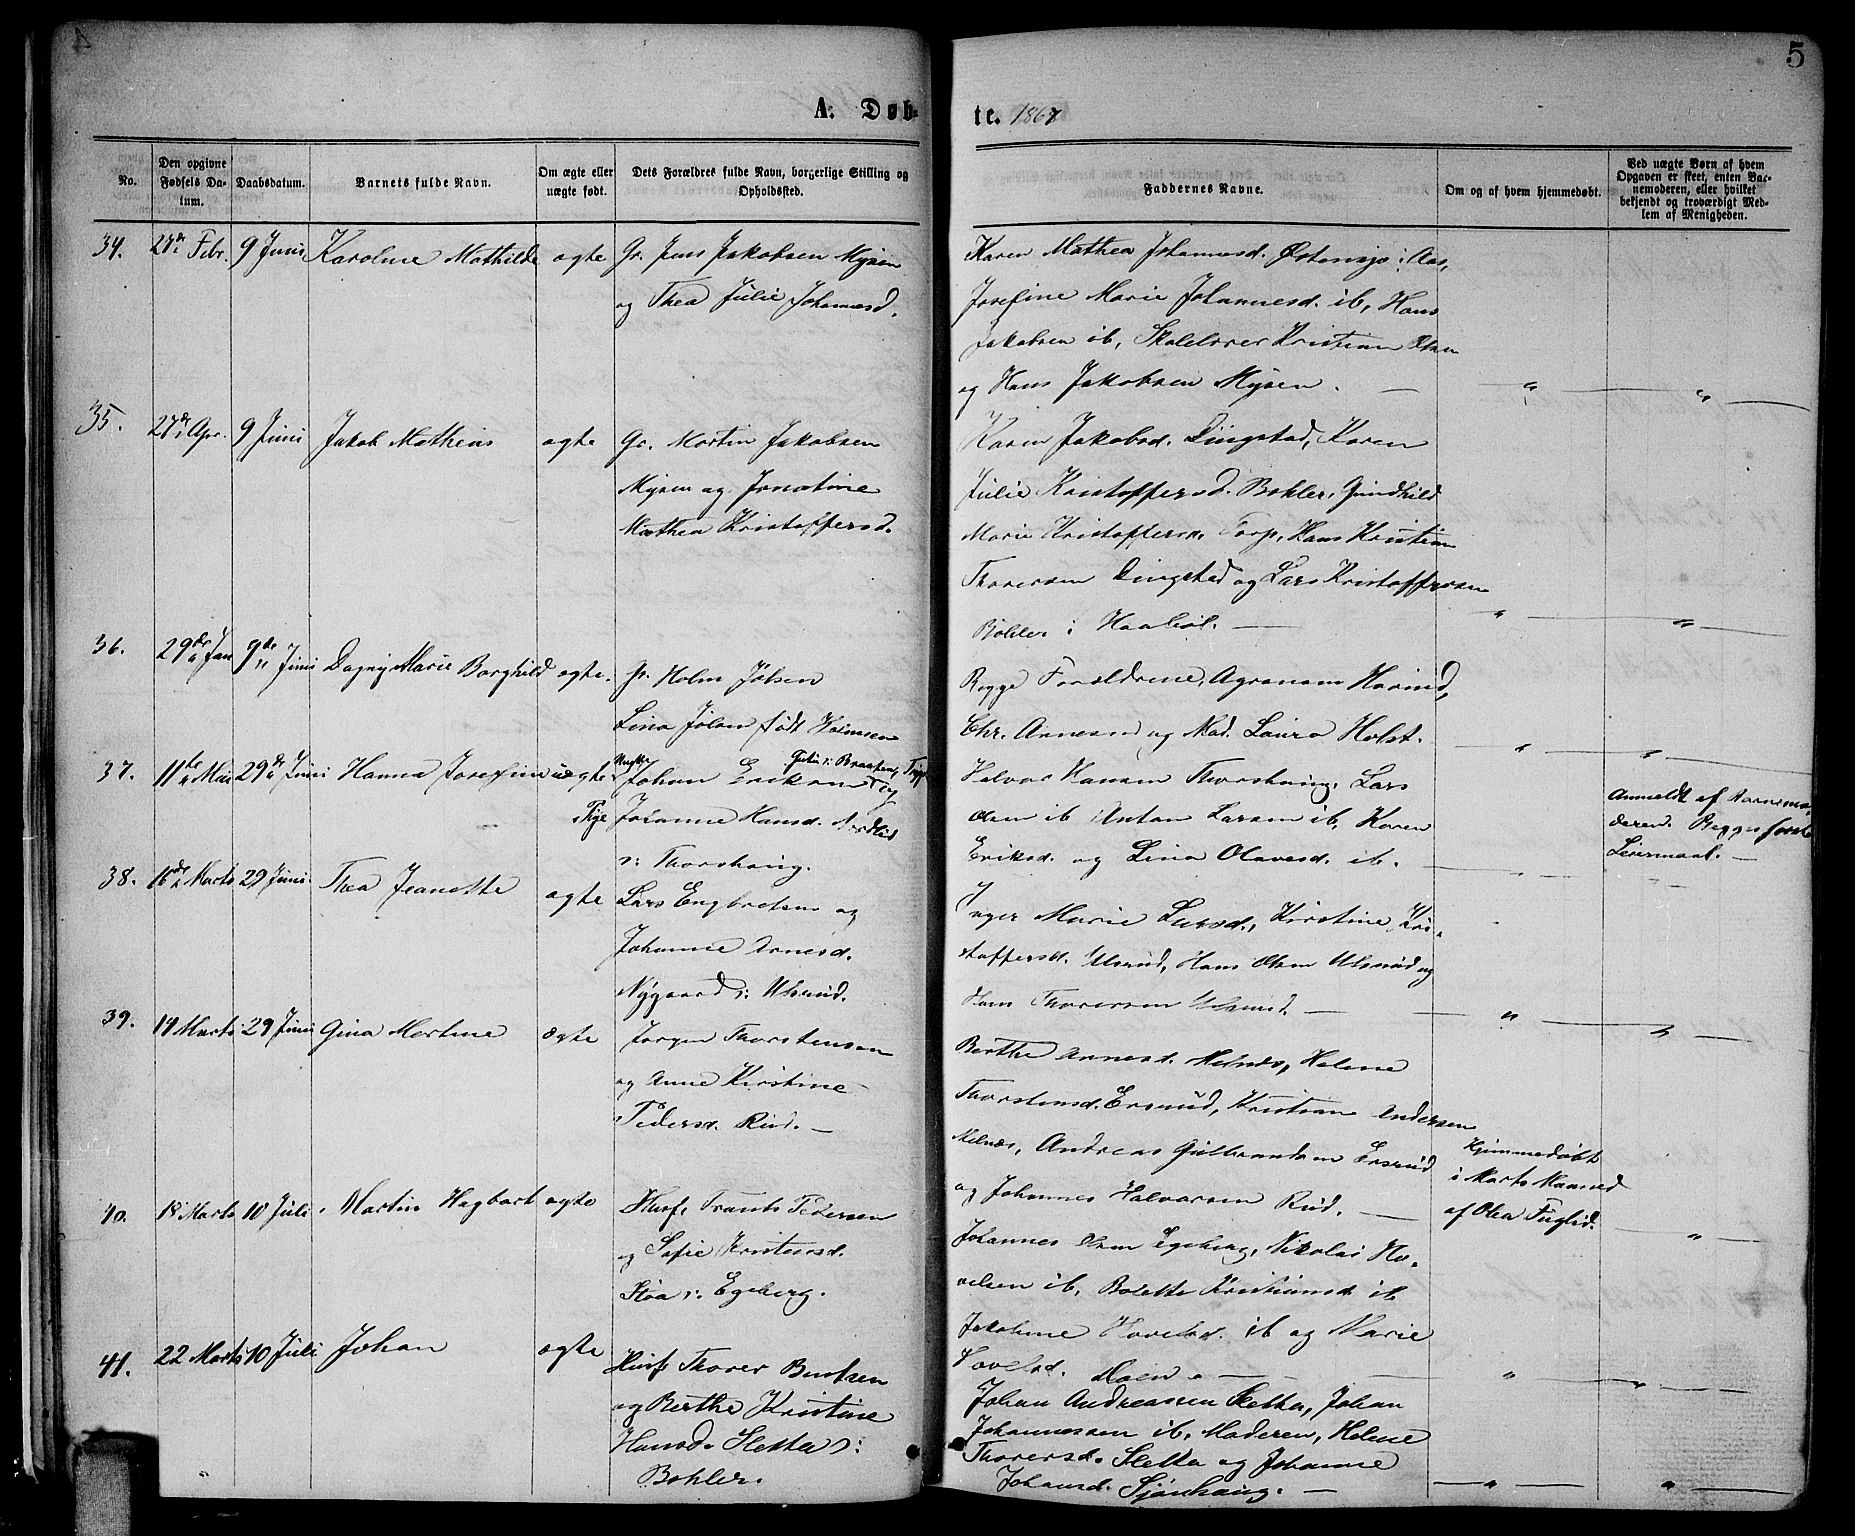 5
A. Døb=
te. 1867
No.
Den opgivne Fødsels Da-tum.
Daabsdatum.
Barnets fulde Navn.
Om ægte eller uægte født.
Dets Forældres fulde Navn, borgerlige Stilling og Opholdssted.
Faddernes Navne.
Om og af hvem hjemmedøbt.
Ved uægte Børn af hvem Opgaven er skeet, enten Bar-nemoderen, eller hvilket bekjendt og troværdigt Med-lem af Menigheden.
34. 27de Febr. 9 Juni Karoline Mathilde ægte Gr. Jens Jakobsen Mysen
og Thea Julie Johannesd.
Karen Mathea Johannesd. Østensjø i Aas,
Josefine Marie Johannesd. ib, Hans
Jakobsen ib, Skolelærer Kristian Olsen
og Hans Jakobsen Mysen. — " — "
35. 27de Apr. 9 Juni Jakob Mathias ægte Gr. Martin Jakobsen
Mysen og Jonetine
Mathea Kristoffersd.
Karen Jakobsd. Dingstad, Karen
Julie Kristoffersd. Bohler, Gundhild
Marie Kristoffersn. Torp, Hans Kristian
Thoresen Dingstad og Lars Kristoffersen
Böhler i Haabøl. — " — "
36. 29de Jan 9de Juni Dagny Marie Borghild ægte. Gr. Holm Jølsen
Lina Jølsen født Heimsen
Begge Forældrene, Agronom
Chr. Arnesen og Mad. Laura Holst. — " — "
37. 11te Mai 29de Juni Hanna Josefine uægte Johan Eriksen
Pige Johanne Hansd.
i Thorshaug.
Halvor Hansen Thorshaug, Lars
Olsen ib Anton Larsen ib, Karen
Eriksd. og Lina Olavesd. ib. —
Anmeldt af Barnemo-
deren. Begges første
Leiermaal. —
38. 16de Marts 29 Juni. Thea Jeanette ægte Lars Engbretsen og
Johanne Arnesd.
Nygaard i Ulsrud.
Inger Marie Larsd., Kirstine Kri-
stoffersd. Ulsrud, Hans Olsen Ulsrud og
Hans Thoresen Ulsrud. — " — "
39. 14 Marts 29 Juni Gina Martine ægte Jørgen Thorstensen
og Anne Kirstine
Pedersd. Rud. —
Berthe Arnesd. Melnæs, Helene
Thorstensd. Ersrud, Kristian Andersen
Melnæs, Andreas Gulbrandsen Ersrud
og Johannes Halvorsen Rud. —
Hjemmedøbt
i Marts Maaned
af Olea Fuglid. — "
40. 18 Marts 10 Juli. Martin Hagbart ægte Husf. Frants Pedersen
og Sofie Kristensd.
Stoa i Egeberg.
Johannes Olsen Egeberg, Nikolai Ho-
velsen ib, Bolette Kristiansd. ib
Jakobine Hovelsd. ib og Marie
Hovelsd. Moen. — " — "
41. 22 Marts 10 Juli Johan ægte Husf Thorer Berntsen
og Berthe Kristine
Hansd. Sletta i
Bohler.
Johan Andreassen Sletta, Johan
Johannessen ib, Moderen, Helene
Thorersd. Sletta og Johanne
Johansd. Sjønhaug. — " — "